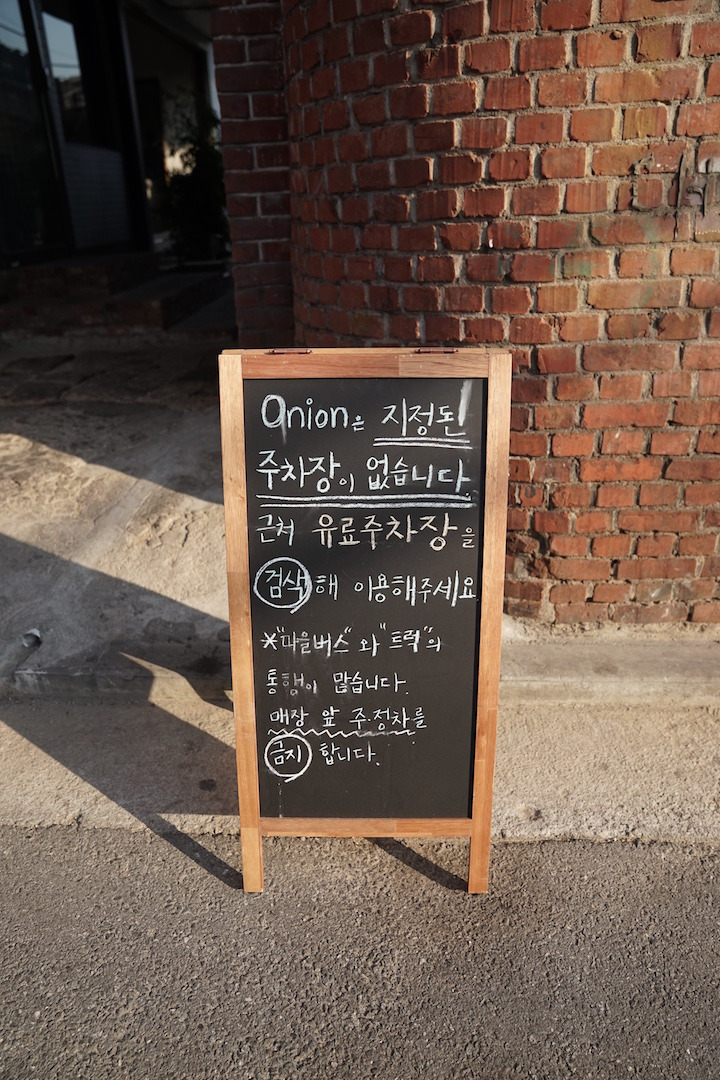 Onion은 지정된
주차장이 없습니다.
근처 유료주차장을
검색해 이용해주세요
*"마을버스"와 "트럭"의
통행이 많습니다.
매장 앞 주·정차를
금지 합니다.